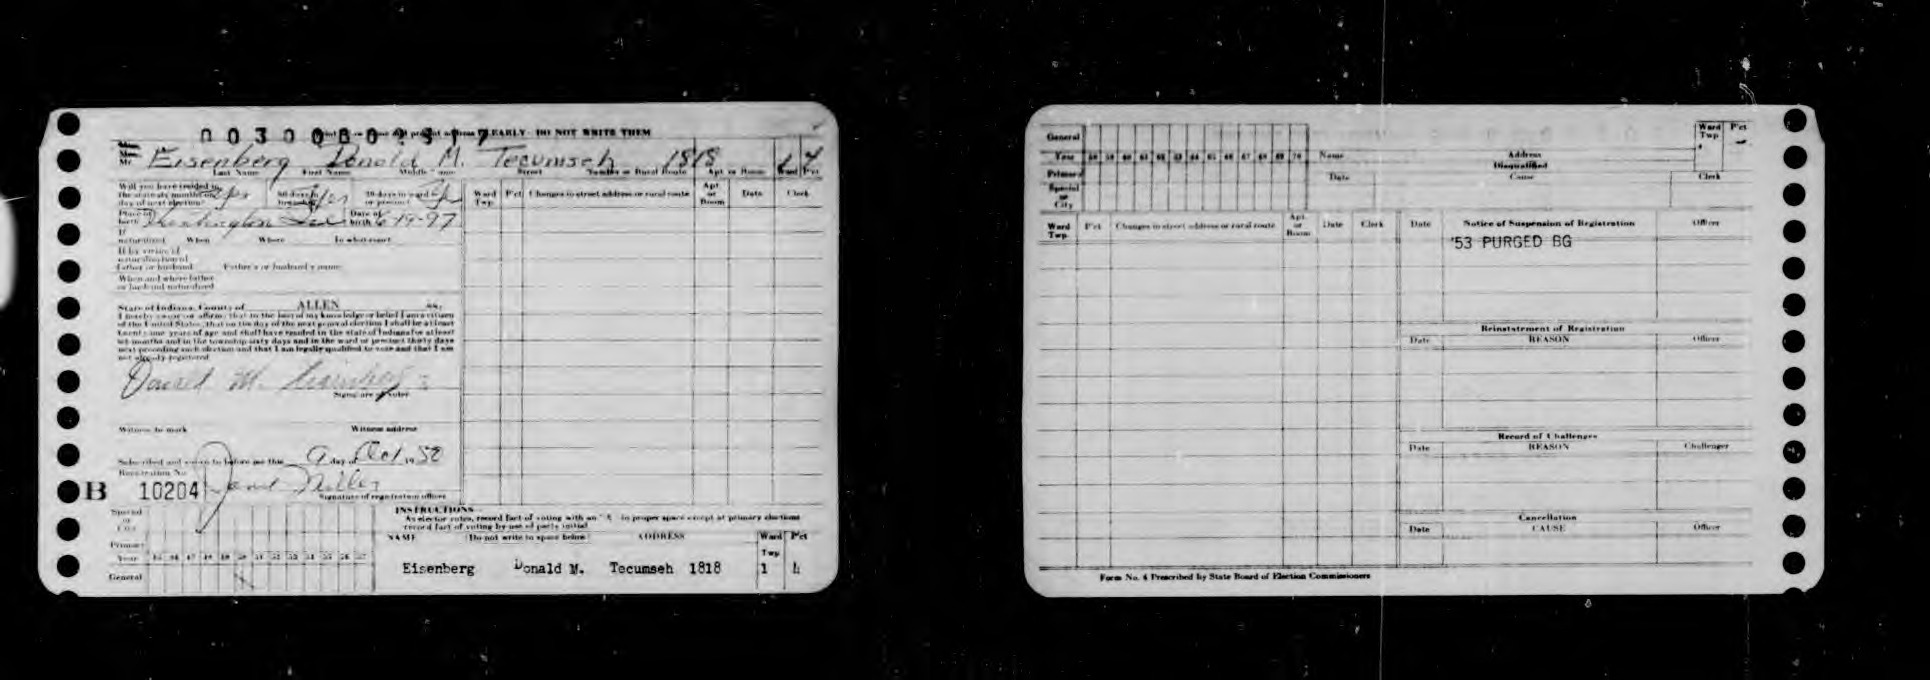 0030000
CLEARLY - DO NOT WRITE THEM
Mr. Eisenberg Donald M. Tecumseh 1818 1 4
Last Name First Name Middle Name Street Number or Rural Route Apt or Room Ward Pct
Will you have resided in the state six months on day of next election? yes 60 days in township? yes 30 days in ward or precinct yes
Place of birth Date of birth 6-19-97
If naturalized When Where In what court
If by virtue of
naturalization of
father or husband Father's or husband's name
When and where father
or husband naturalized
State of Indiana, County of ALLEN ss.
I hereby swear or affirm, that to the best of my knowledge or belief I am a citizen
of the United States, that on the day of the next general election I shall be at least
twenty-one years of age and shall have resided in the state of Indiana for at least
six months and in the township sixty days and in the ward or precinct thirty days
next preceding such election and that I am legally qualified to vote and that I am
not already registered
Donald M. Eisenberg
Signature of voter
Witness to mark Witness address
Subscribed and sworn to before me this 9 day of Oct 1950
Registration No.
B 10204 Miller
Signature of registration officer
Ward Twp. Pct Changes in street address or rural route Apt or Room Date Clerk
INSTRUCTIONS
As elector votes, record fact of voting with an "X" in proper space except at primary elections
record fact of voting by use of party initial
Special
or
City
Primary
Year 45 46 47 48 49 50 51 52 53 54 55 56 57
General X
NAME (Do not write in space below) ADDRESS Ward Twp Pct
Eisenberg Donald M. Tecumseh 1818 1 4
General
Year 58 59 60 61 62 63 64 65 66 67 68 69 70
Primary
Special
or
City
Name Address
Ward Twp Pct
Disqualified
Date Cause Clerk
Ward Twp. Pct Changes in street address or rural route Apt. or Room Date Clerk
Date Notice of Suspension of Registration Officer
'53 PURGED BG
Reinstatement of Registration
Date REASON Officer
Record of Challenges
Date REASON Challenger
Cancellation
Date CAUSE Officer
Form No. 4 Prescribed by State Board of Election Commissioners